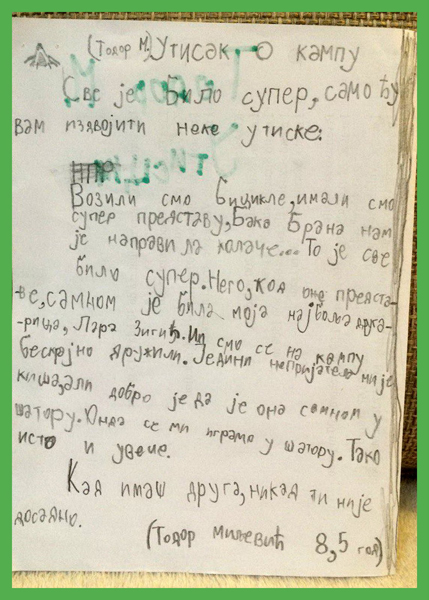 (Тодор М.) Утисак о кампу
Све је било супер, само ћу
вам издвојити неке утиске:
НПР
Возили смо бицикле, имали смо
супер представу, Бака Брана нам
је направила колаче... То је све
било супер. Него, код оне предста-
-ве, самном је била моја најбоља друга-
-рица, Лара Зигић. Ми смо се на кампу
бескрајно дружили. Једини непријатељ није
киша, али добро је да је она самном у
шатору. Онда се ми играмо у шатору. Тако
исто и увече.
Кад имаш друга, никад ти није
досадно.
(Тодор Милевић 8,5 год)